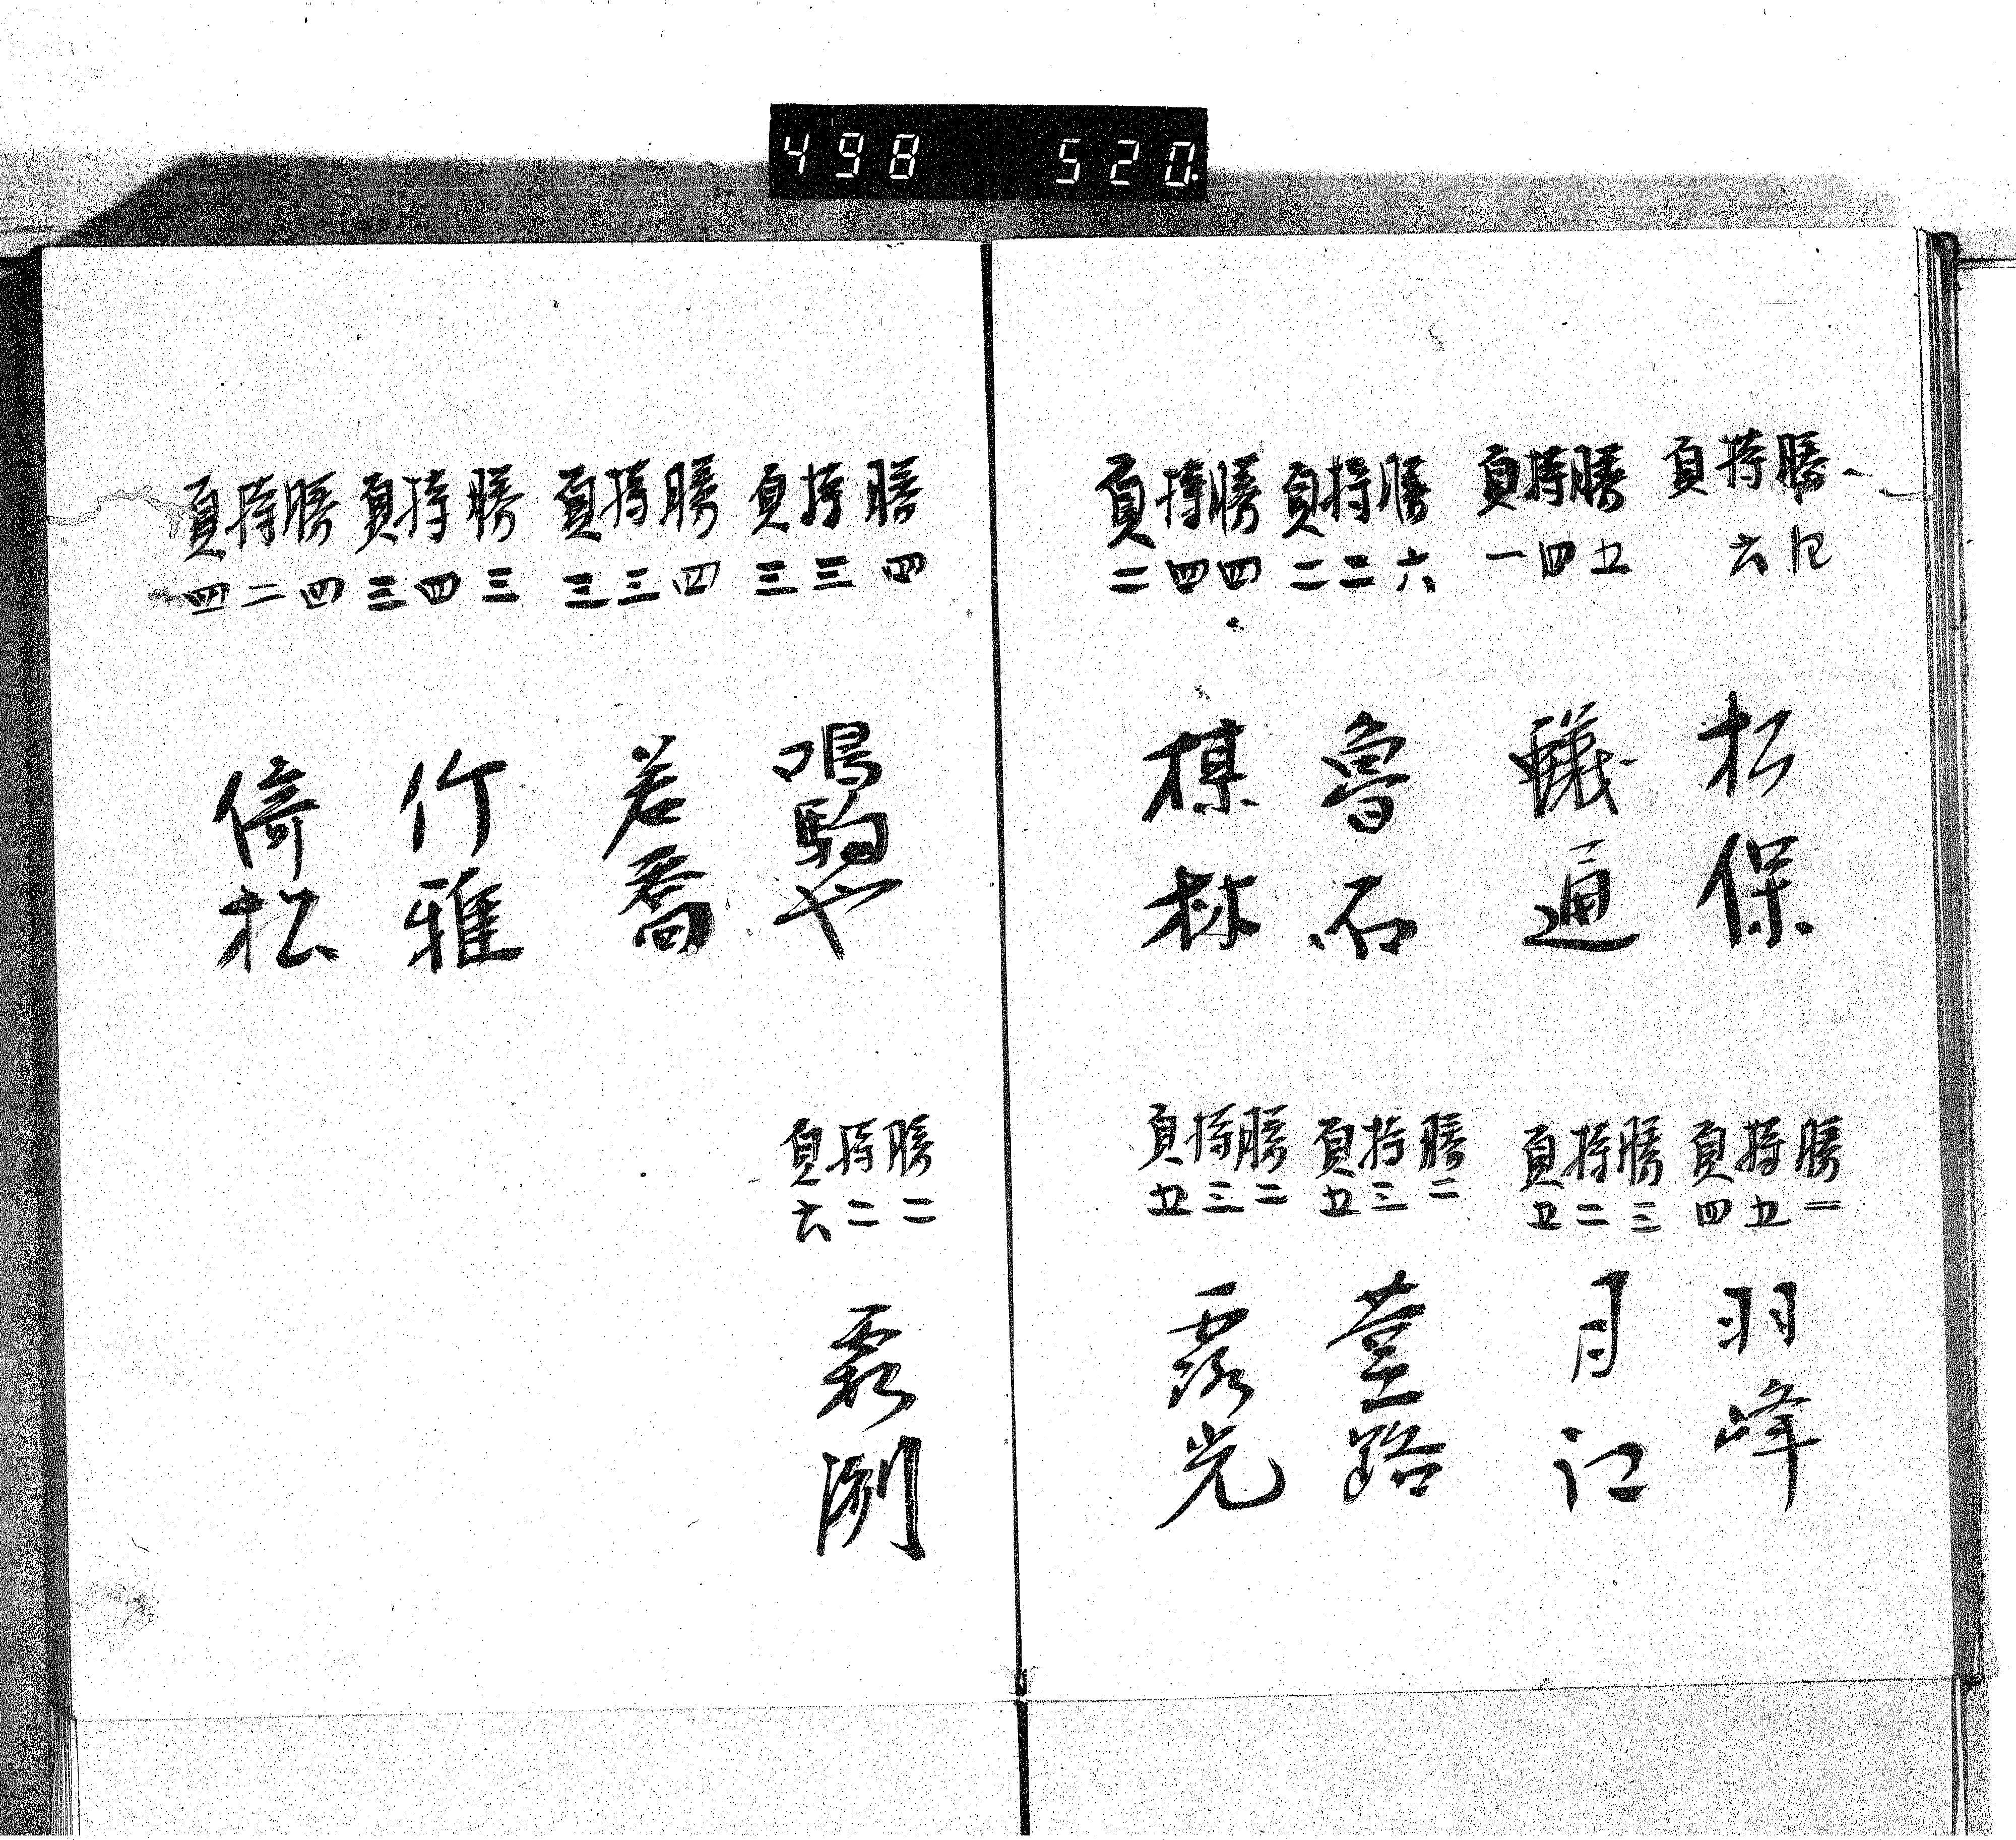 498 520
勝四 持六 負 松保
勝五 持四 負一 蟻通
勝六 持二 負二 魯石
勝四 持四 負二 楳林
勝一 持五 負四 羽峰
勝三 持二 負五 月江
勝二 持三 負五 臺路
勝二 持三 負五 露光
勝四 持三 負三 鳴駒や
勝四 持三 負三 若喬
勝三 持四 負三 竹雅
勝四 持二 負四 倚松
勝二 持二 負六 渕